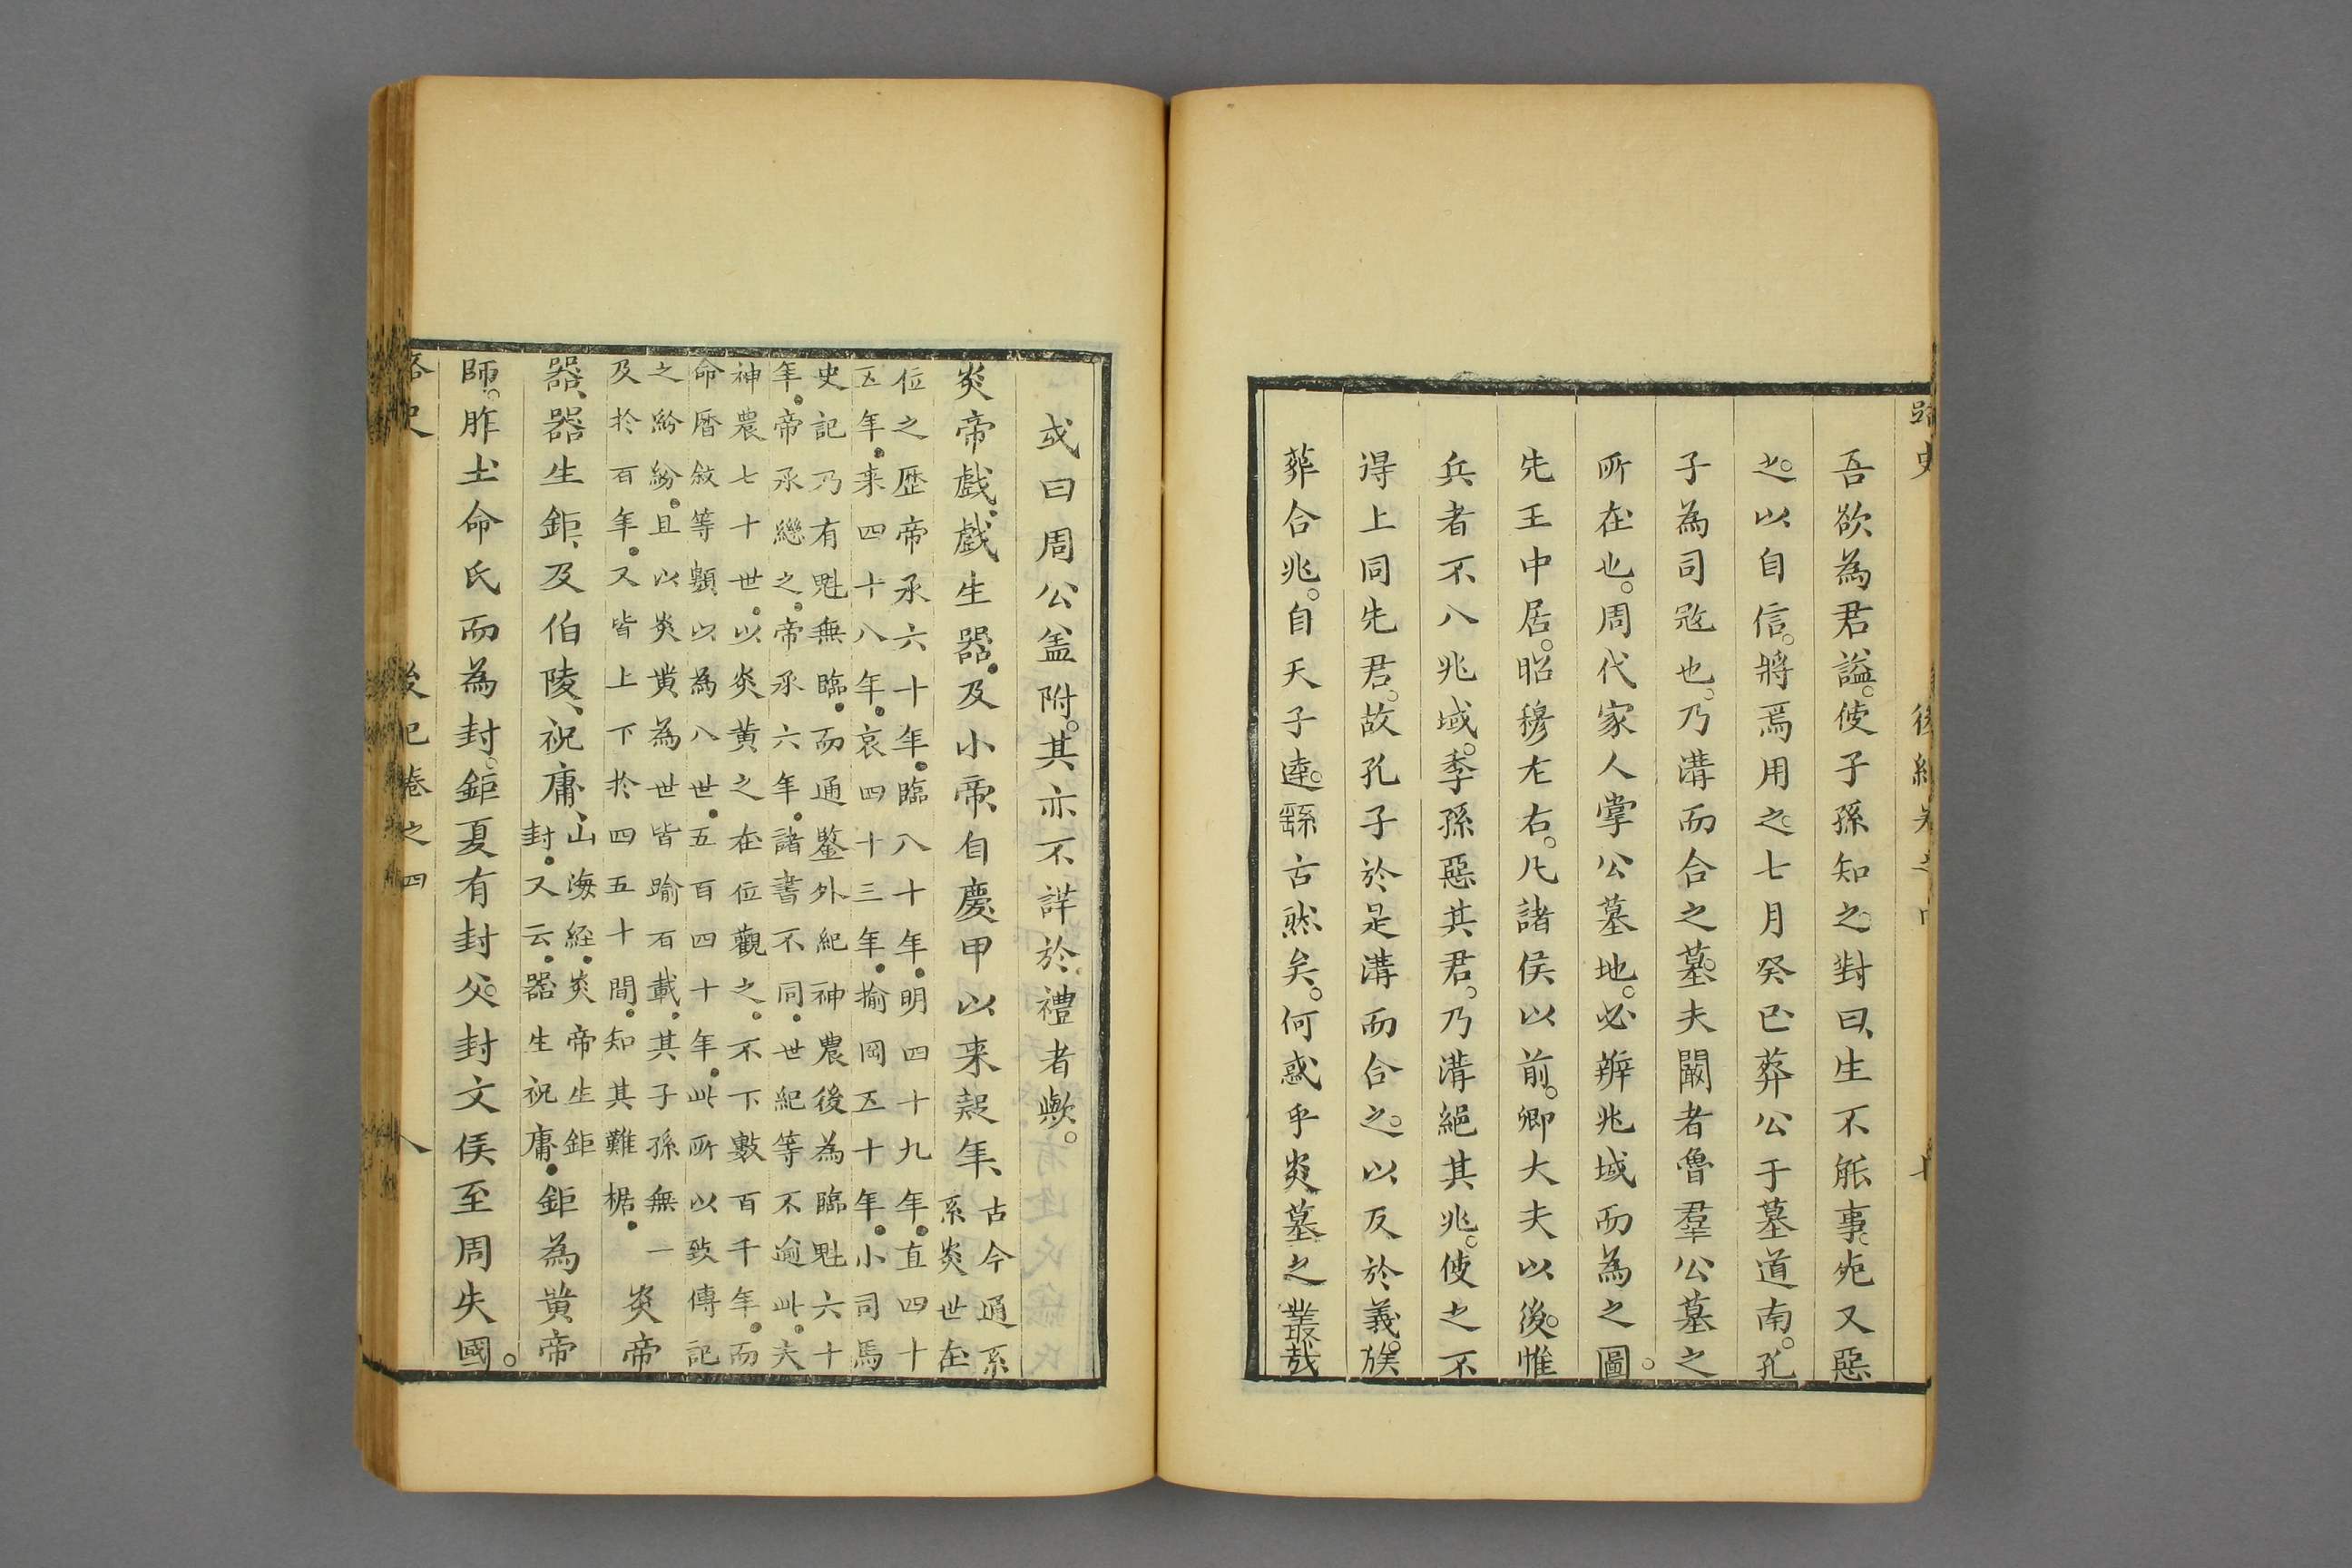 路史
後紀卷之四
吾欲為君謚。使子孫知之。對曰、生不能事。死又惡
之。以自信。將焉用之。七月癸巳葬公于墓道南。孔
子為司寇也。乃溝而合之墓。夫闞者魯羣公墓之
所在也。周代家人掌公墓地。必辨兆域而為之圖。
先王中居。昭穆左右。凡諸侯以前。卿大夫以後。惟
兵者不入兆域。季孫惡其君。乃溝絕其兆。使之不
得上同先君。故孔子於是溝而合之。以反於義。族
葬合兆。自天子達。繇古然矣。何惑乎炎墓之叢哉
或曰周公盖附。其亦不詳於禮者歟。
炎帝戲、戲生器、及小帝、自慶甲以来疑年、古今通系
系炎世在
位之歷帝承六十年。臨八十年。明四十九年。直四十
五年。来四十八年。哀四十三年。揄岡五十年。小司馬
史記乃有魁無臨。而通鑒外紀神農後為臨魁六十
年。帝承繼之。帝承六年。諸書不同。世紀等不逾此。夫
神農七十世。以炎黄之在位觀之。不下數百千年。而
命曆敘等顯以為八世。五百四十年。此所以致傳記
之紛紛。且以炎黄為世皆踰百載。其子孫無一
及於百年。又皆上下於四五十間。知其難椐。
炎帝
器、器生鉅、及伯陵、祝庸、山海經。炎帝生鉅
封。又云。器生祝庸。鉅為黄帝
師。胙土命氏而為封。鉅夏有封父。封文侯至周失國。
路史
後紀卷之四
八